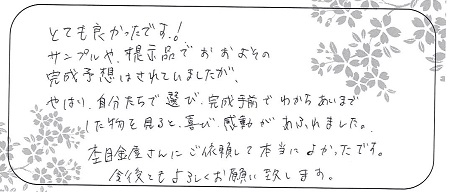 とても良かったです。!
サンプルや、提示品でおおよその
完成予想はされていましたが、
やはり、自分たちで選び、完成手前でわからあいまで
した物を見ると、喜び、感動があふれました。
杢目金屋さんにご依頼して本当によかったです。
今後ともよろしくお願い致します。